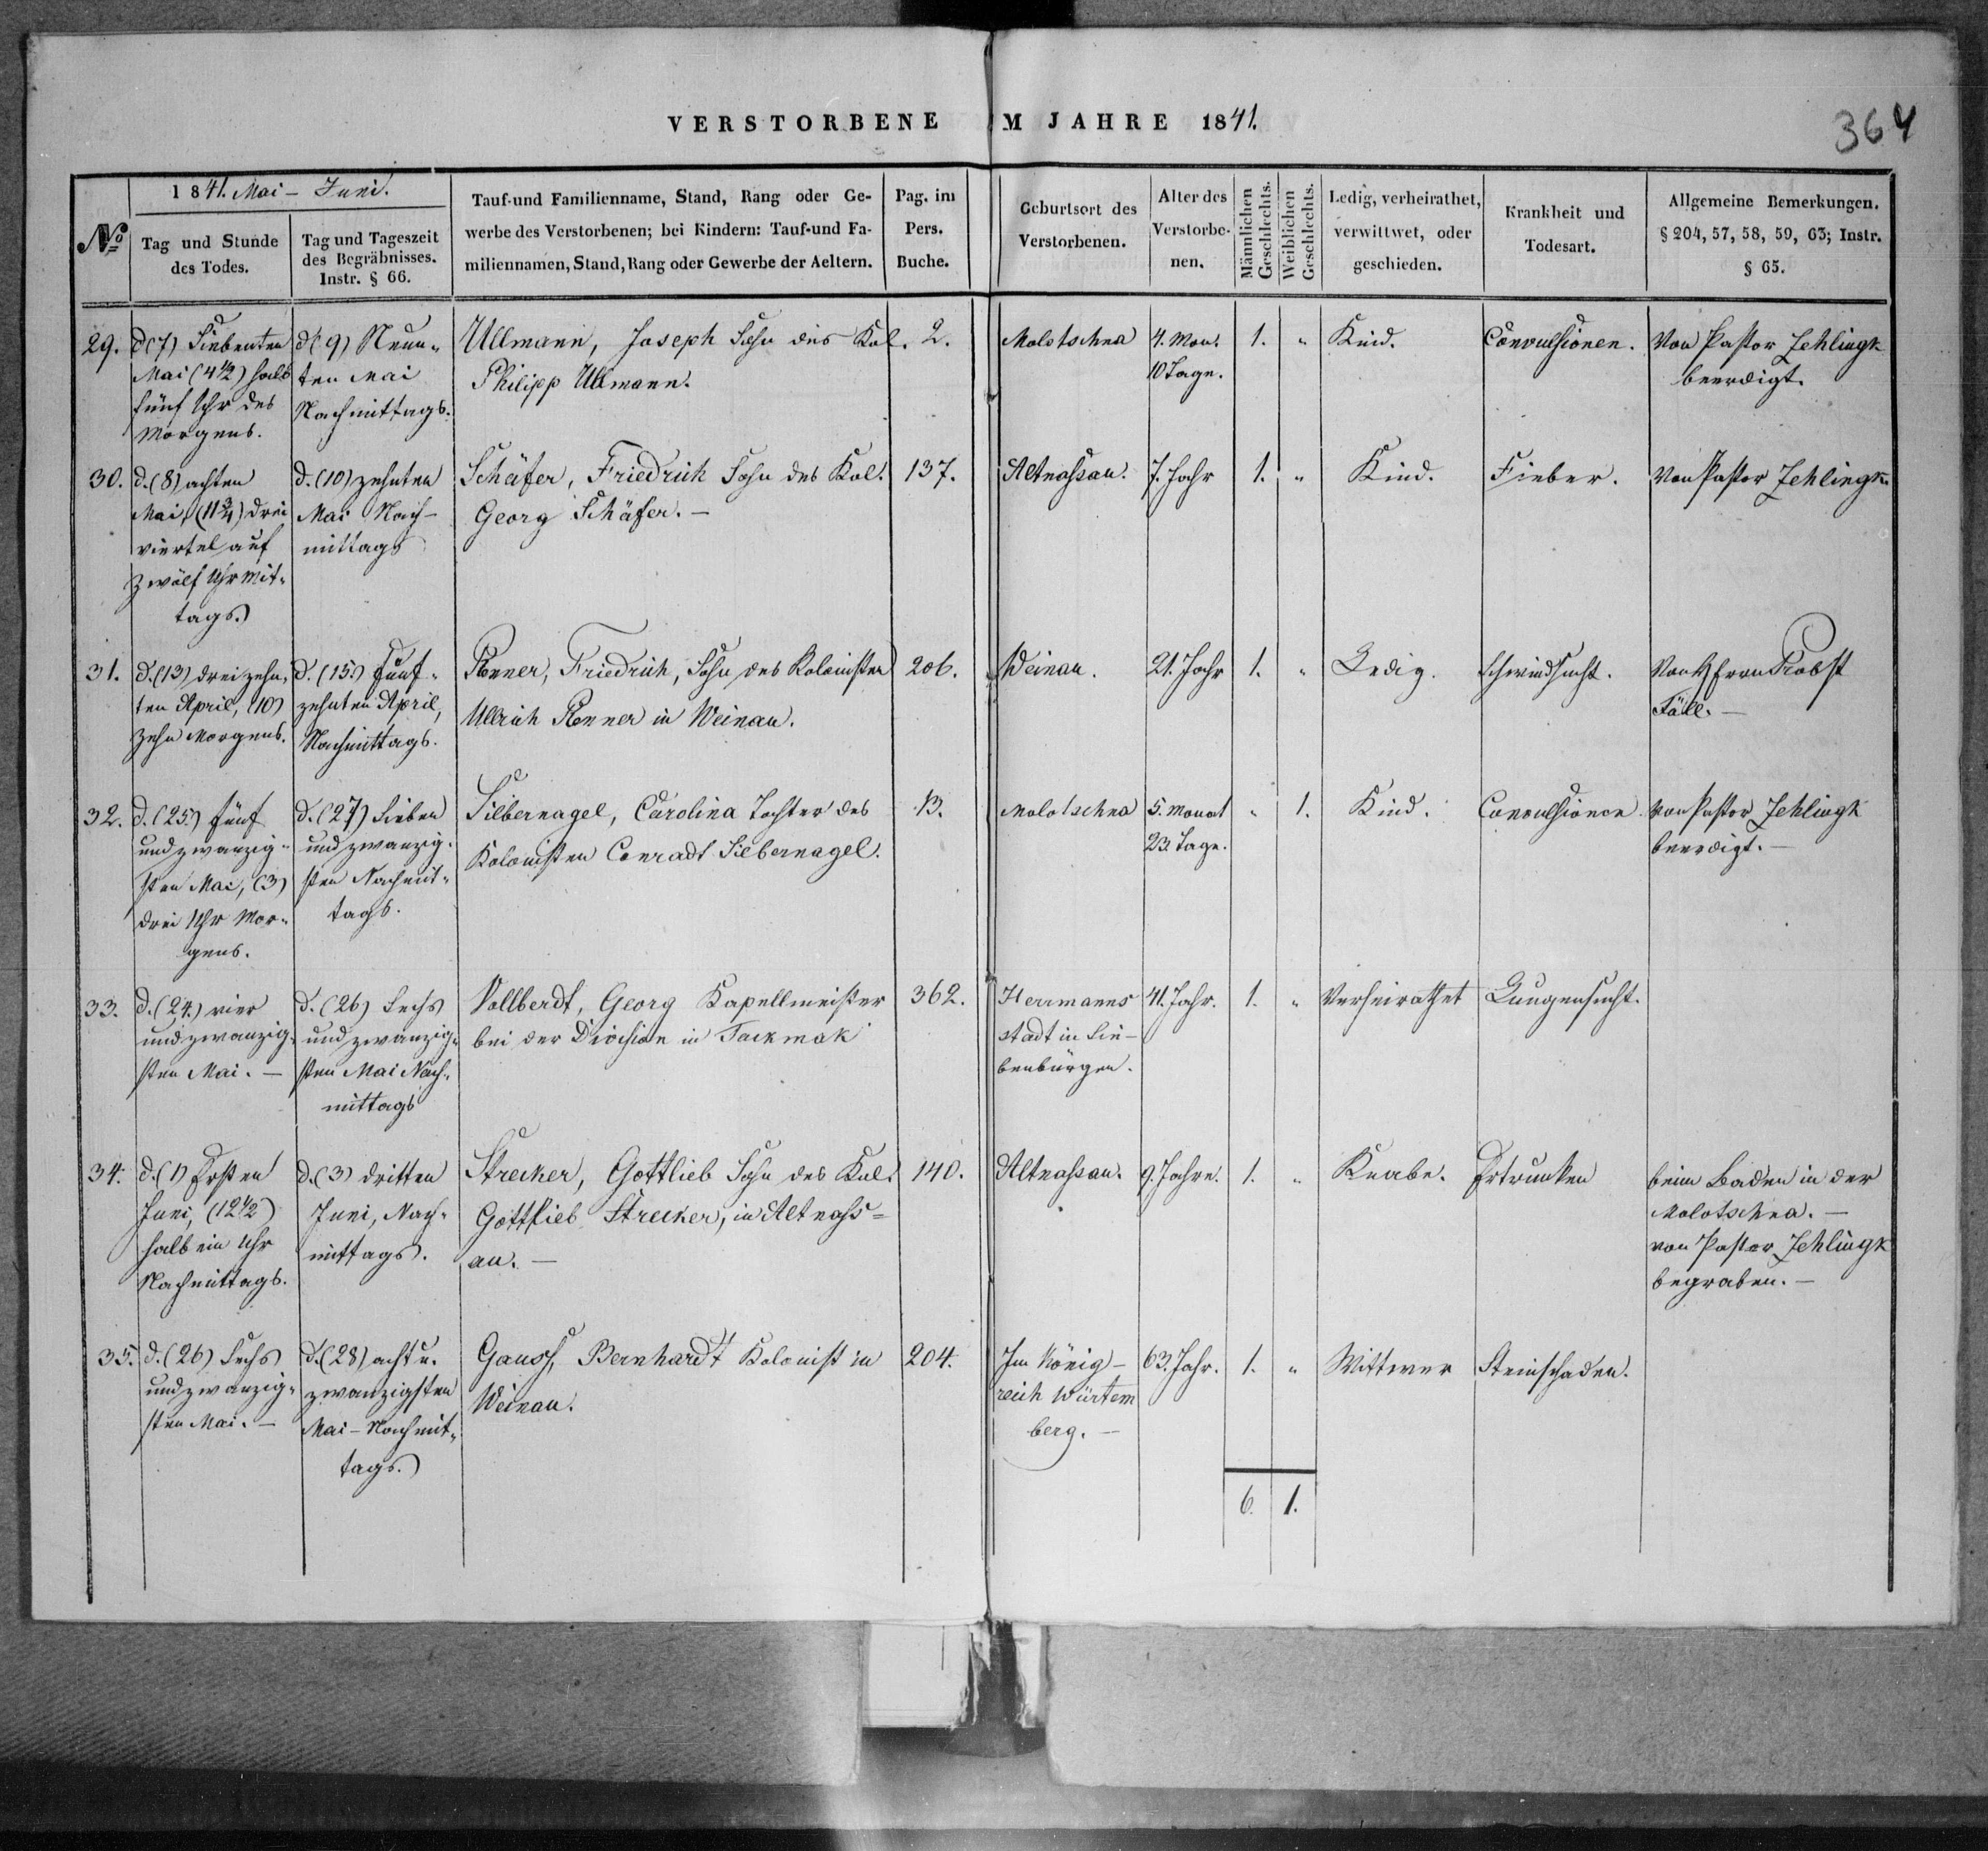 VERSTORBENE IM JAHRE 1841.
364
No
1841. Mai – Juni.
Tag und Stunde
des Todes.
Tag und Tageszeit
des Begräbnisses.
Instr. § 66.
Tauf-und Familienname, Stand, Rang oder Ge-
werbe des Verstorbenen; bei Kindern: Tauf-und Fa-
miliennamen, Stand, Rang oder Gewerbe der Aeltern.
Pag. im
Pers.
Buche.
Geburtsort des
Verstorbenen.
Alter des
Verstorbe-
nen.
Männlichen
Geschlechts.
Weiblichen
Geschlechts.
Ledig, verheirathet,
verwittwet, oder
geschieden.
Krankheit und
Todesart.
Allgemeine Bemerkungen.
§ 204, 57, 58, 59, 63; Instr.
§ 65.
29.
d (7) Siebenten
Mai (4 1/2) halb
fünf Uhr des
Morgens.
d (9) Neun-
ten Mai
Nachmittags.
Ullmann, Joseph Sohn des Kol.
Philipp Ullmann.
2.
Molotschna
4. Mon.
10 Tage.
1.
"
Kind.
Convulsionen.
Von Pastor Zehlingk
beerdigt.
30.
d. (8) achten
Mai, (11 3/4) drei
viertel auf
zwölf Uhr Mit-
tags.
d. (10) zehnten
Mai Nach-
mittags
Schäfer, Friedrich Sohn des Kol.
Georg Schäfer. –
137.
Altnassau.
7. Jahr
1.
"
Kind.
Fieber.
Von Pastor Zehlingk.
31.
d. (13) dreizehn-
ten April, (10)
zehn Morgens.
d. (15.) fünf-
zehnten April,
Nachmittags.
Renner, Friedrich, Sohn des Kolonisten
Ullrich Renner in Weinau.
206.
Weinau.
21. Jahr
1.
"
Ledig.
Schwindsucht.
Von Herrn Probst
Fäll. –
32.
d. (25.) fünf
und zwanzig-
sten Mai, (3)
drei Uhr Mor-
gens.
d. (27) Sieben
und zwanzig-
sten Nachmit-
tags.
Silbernagel, Carolina Tochter des
Kolonisten Conradt Silbernagel.
13.
Molotschna
5. Monat
23. Tage.
"
1.
Kind.
Convulsionen
Von Pastor Zehlingk
beerdigt. –
33.
d. (24.) vier
und zwanzig-
sten Mai. –
d. (26) Sechs
und zwanzig-
sten Mai Nach-
mittags
Vollberdt, Georg Kapellmeister
bei der Division in Tackmak
362.
Herrmanns
stadt in Sie-
benbürgen.
41. Jahr.
1.
"
Verheirathet
Lungensucht.
34.
d. (1) Ersten
Juni, (12 1/2)
halb ein Uhr
Nachmittags.
d. (3) dritten
Juni, Nach-
mittags.
Strecker, Gottlieb Sohn des Kol.
Gottlieb Strecker, in Altnass=
au. –
140.
Altnassau.
9. Jahre.
1.
"
Knabe.
Ertrunken
beim Baden in der
Molotschna. –
von Pastor Zehlingk
begraben. –
35.
d. (26) Sechs
und zwanzig-
sten Mai. –
d. (28) acht u.
zwanzigsten
Mai – Nachmit-
tags.
Gauss, Bernhardt Kolonist in
Weinau.
204.
Im König-
reich Würtem
berg. –
63. Jahr.
1.
"
Wittwer
Steinschaden.
6. 1.